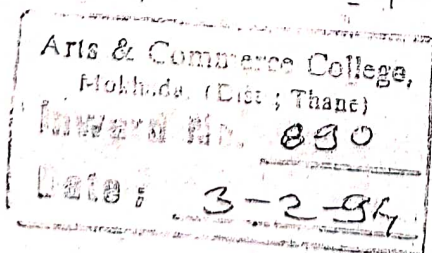 Arts & Commerce College,
Mokhada. (Dist ; Thane)
Inward No. 890
Date : 3-2-94